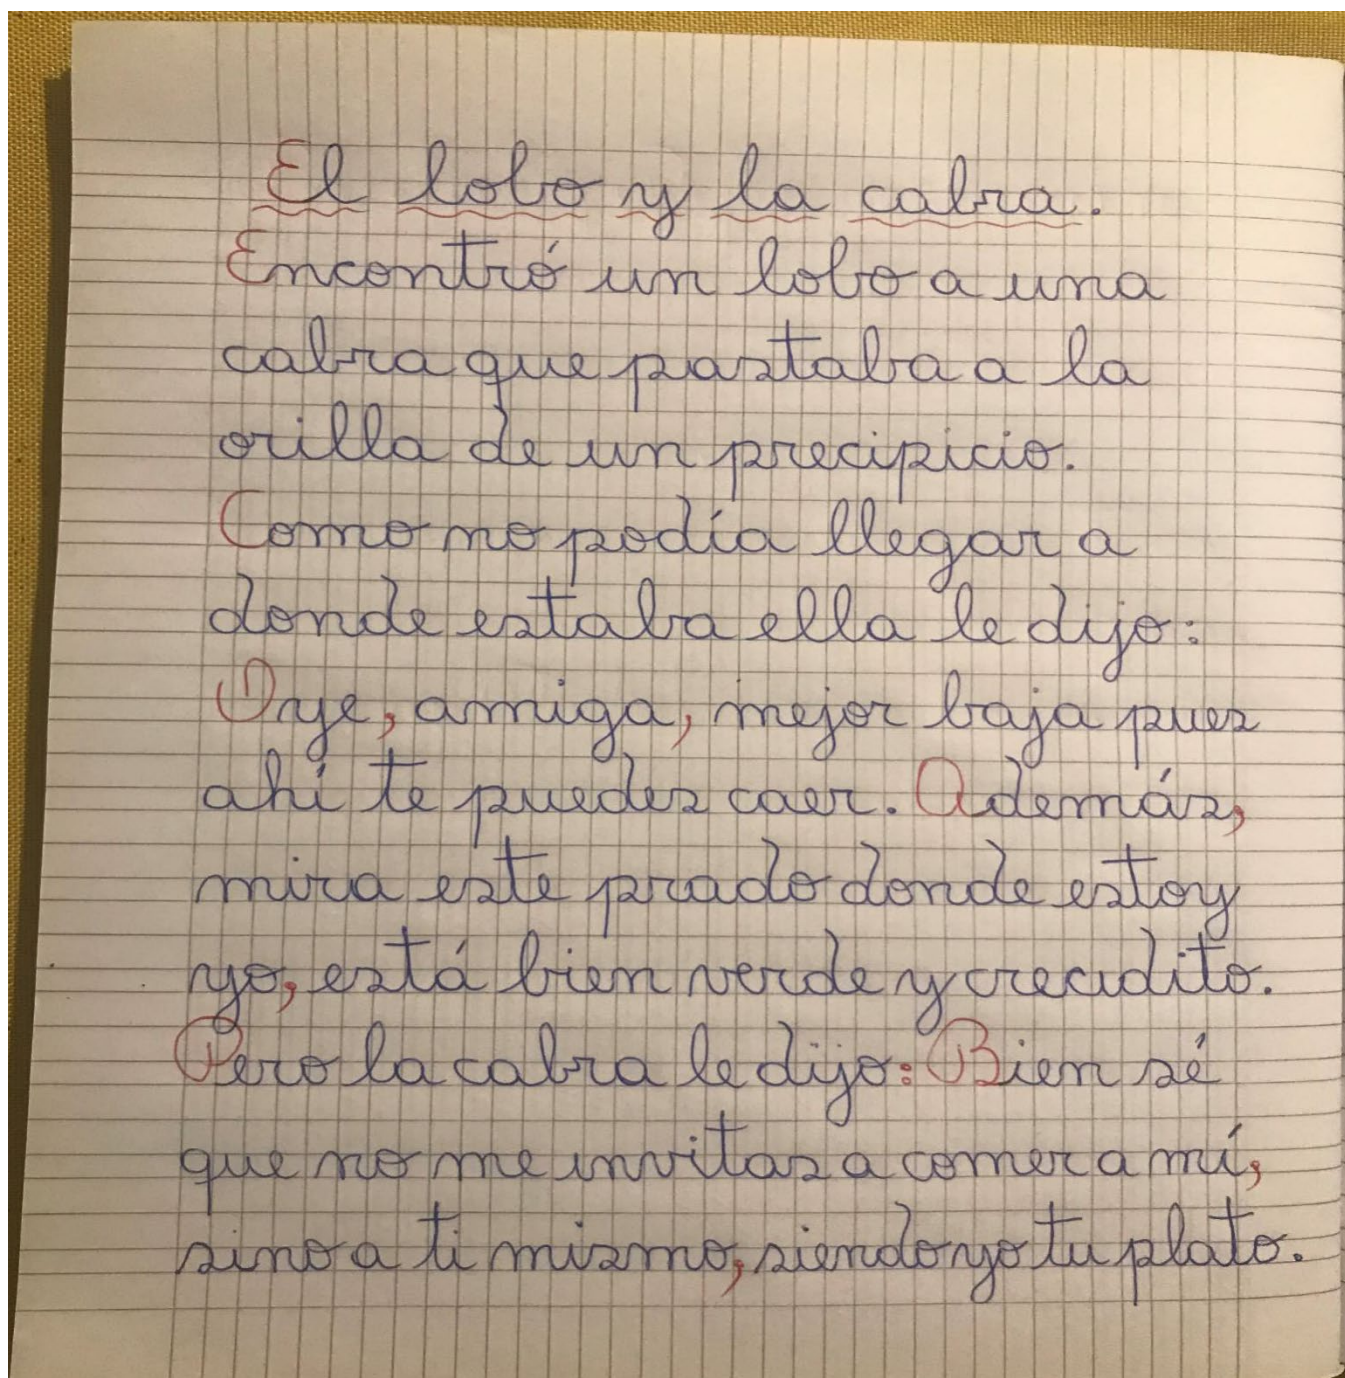 El lobo y la cabra.
Encontró un lobo a una
cabra que pastaba a la
orilla de un precipicio.
Como no podía llegar a
donde estaba ella le dijo:
Oye, amiga, mejor baja pues
ahí te puedes caer. Además,
mira este prado donde estoy
yo, está bien verde y crecidito.
Pero la cabra le dijo: Bien sé
que no me invitas a comer a mí,
sino a ti mismo, siendo yo tu plato.